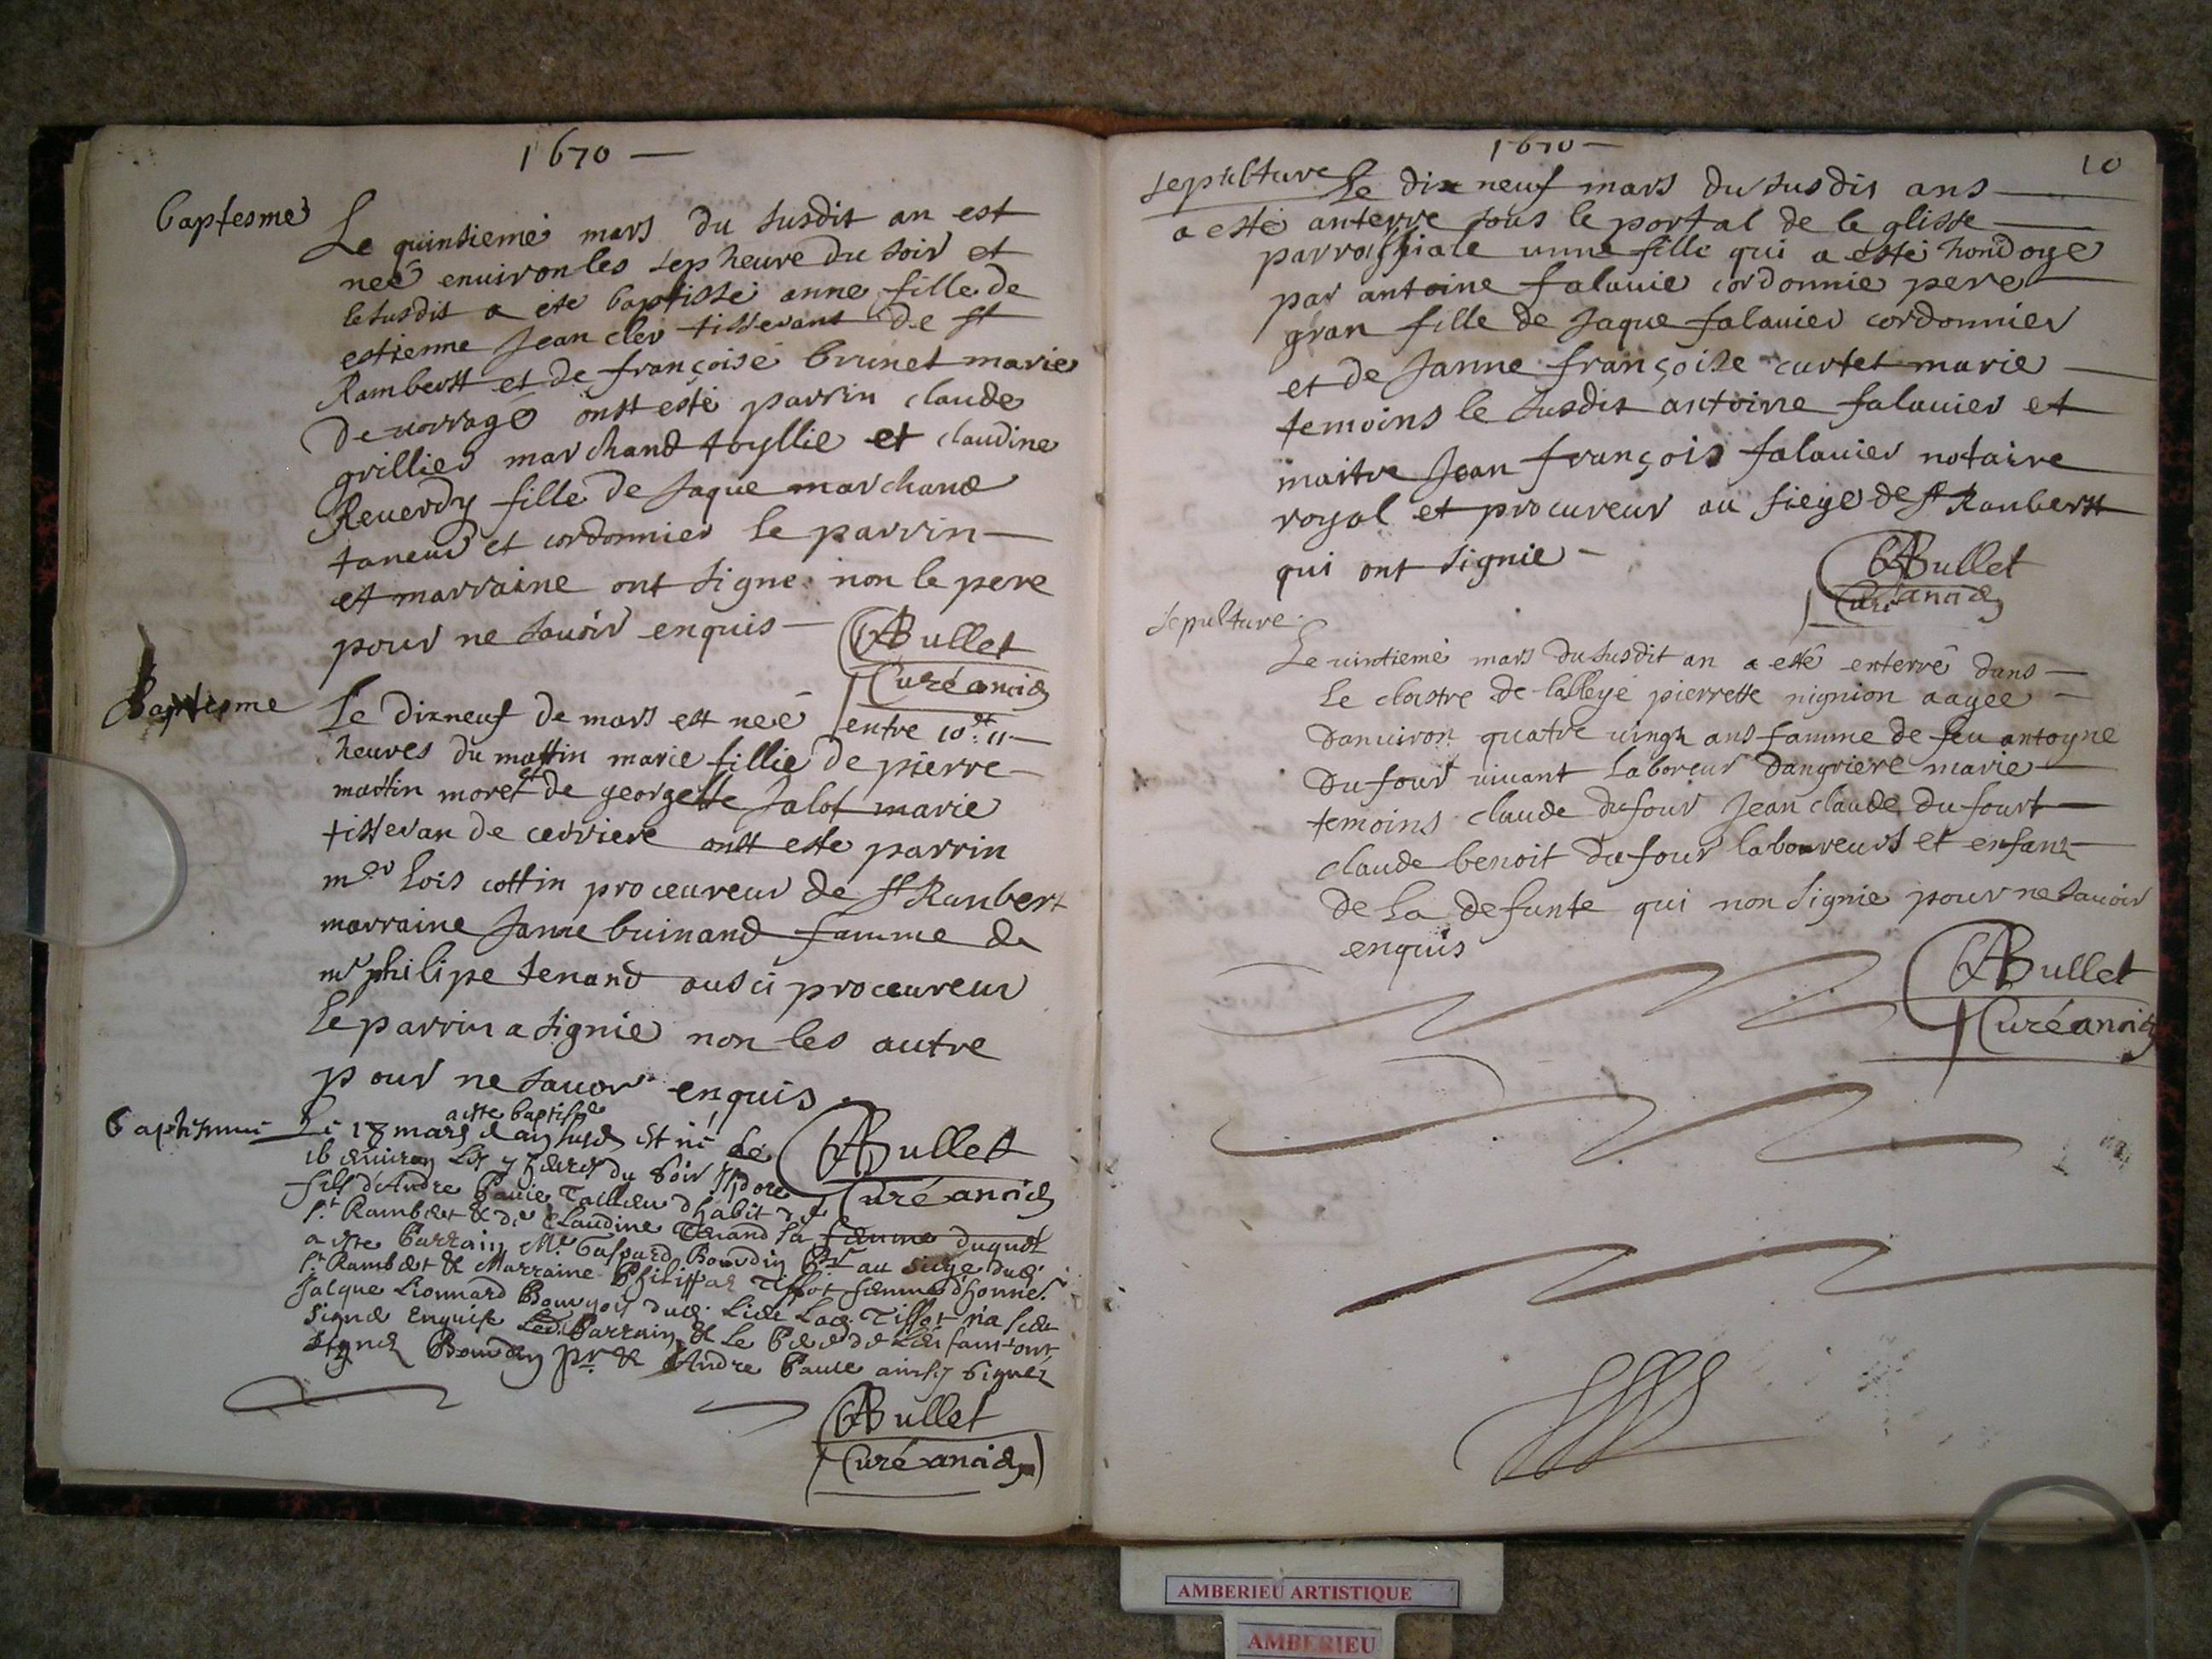 1670 —
baptesme
Le quinsieme mars du susdit an est
neé enuiron les sep heure du soir et
le susdit a eté baptissé anne fille de
estienne Jean cler tisserant de st
Rambertt et de françoise brunet marie
de uorrage ontt esté parrin claude
grillier marchand toyllie et claudine
Reuerdy fille de Jaque marchand
taneur et cordonnier le parrin —
et marraine ont signe non le pere
pour ne sauoir enquis —
ABullet
Curé ancien
Baptesme
Le dixneuf de mars est neé entre 10 et 11 —
heures du mattin marie fillie de pierre —
martin moret et de georgette Jalot marie
tisseran de cerriere ontt este parrin
mer Lois cottin proceureur de st Ranbert
marraine Janne buinand famme de
mr philipe tenand ausci proceureur
Le parrin a signie non les autre
pour ne sauor enquis .
ABullet
Curé ancien
Baptesme
a este baptisé
Le 18 mars est né le
16 enuiron Les 7 heures du Soir
fils d'Andre Pauie Tailleur d'habit de
St. Rambert & de Claudine Tenand sa femme duquel
a este Parrain Mr. Gaspard Boudin Pr au siege dud.
St. Rambert & Marraine Tissot femme d'honne.
Jacque Lionnard Bourgois dud. Lieu Lad. Tissot n'a sceu
signer Enquise Led. Parrain & Le Pere de Lenfant ont
signez Boudin Pr & Andre Pauie ainsy signez
ABullet
Curé ancien
1670 —
10
sepulture
Le dix neuf mars du susdis ans —
a esté anterre sous le portal de le glisse —
parrochiale unne fille qui a esté hondoye
par antoine falauie cordonnie pere
gran fille de Jaque falauier cordonnier
et de Janne françoise curtet marie —
temoins le susdis antoine falauier et
maitre Jean françois falauier notaire
royal et procureur au siege de st Ranbertt
qui ont signie —
ABullet
Curé ancien
sepulture
Le uintieme mars du susdit an a esté enterré dans —
Le cloistre de lalleyé pierrette nignion aagee —
danuiron quatre uingt ans famme de feu antoyne
du four uiuant laboreur dangriere marie —
temoins claude dufour Jean claude du fourt —
claude benoit du four laboureurs et enfant —
de La defunte qui non signie pour ne sauoir
enquis
ABullet
Curé ancien
AMBERIEU ARTISTIQUE
AMBERIEU